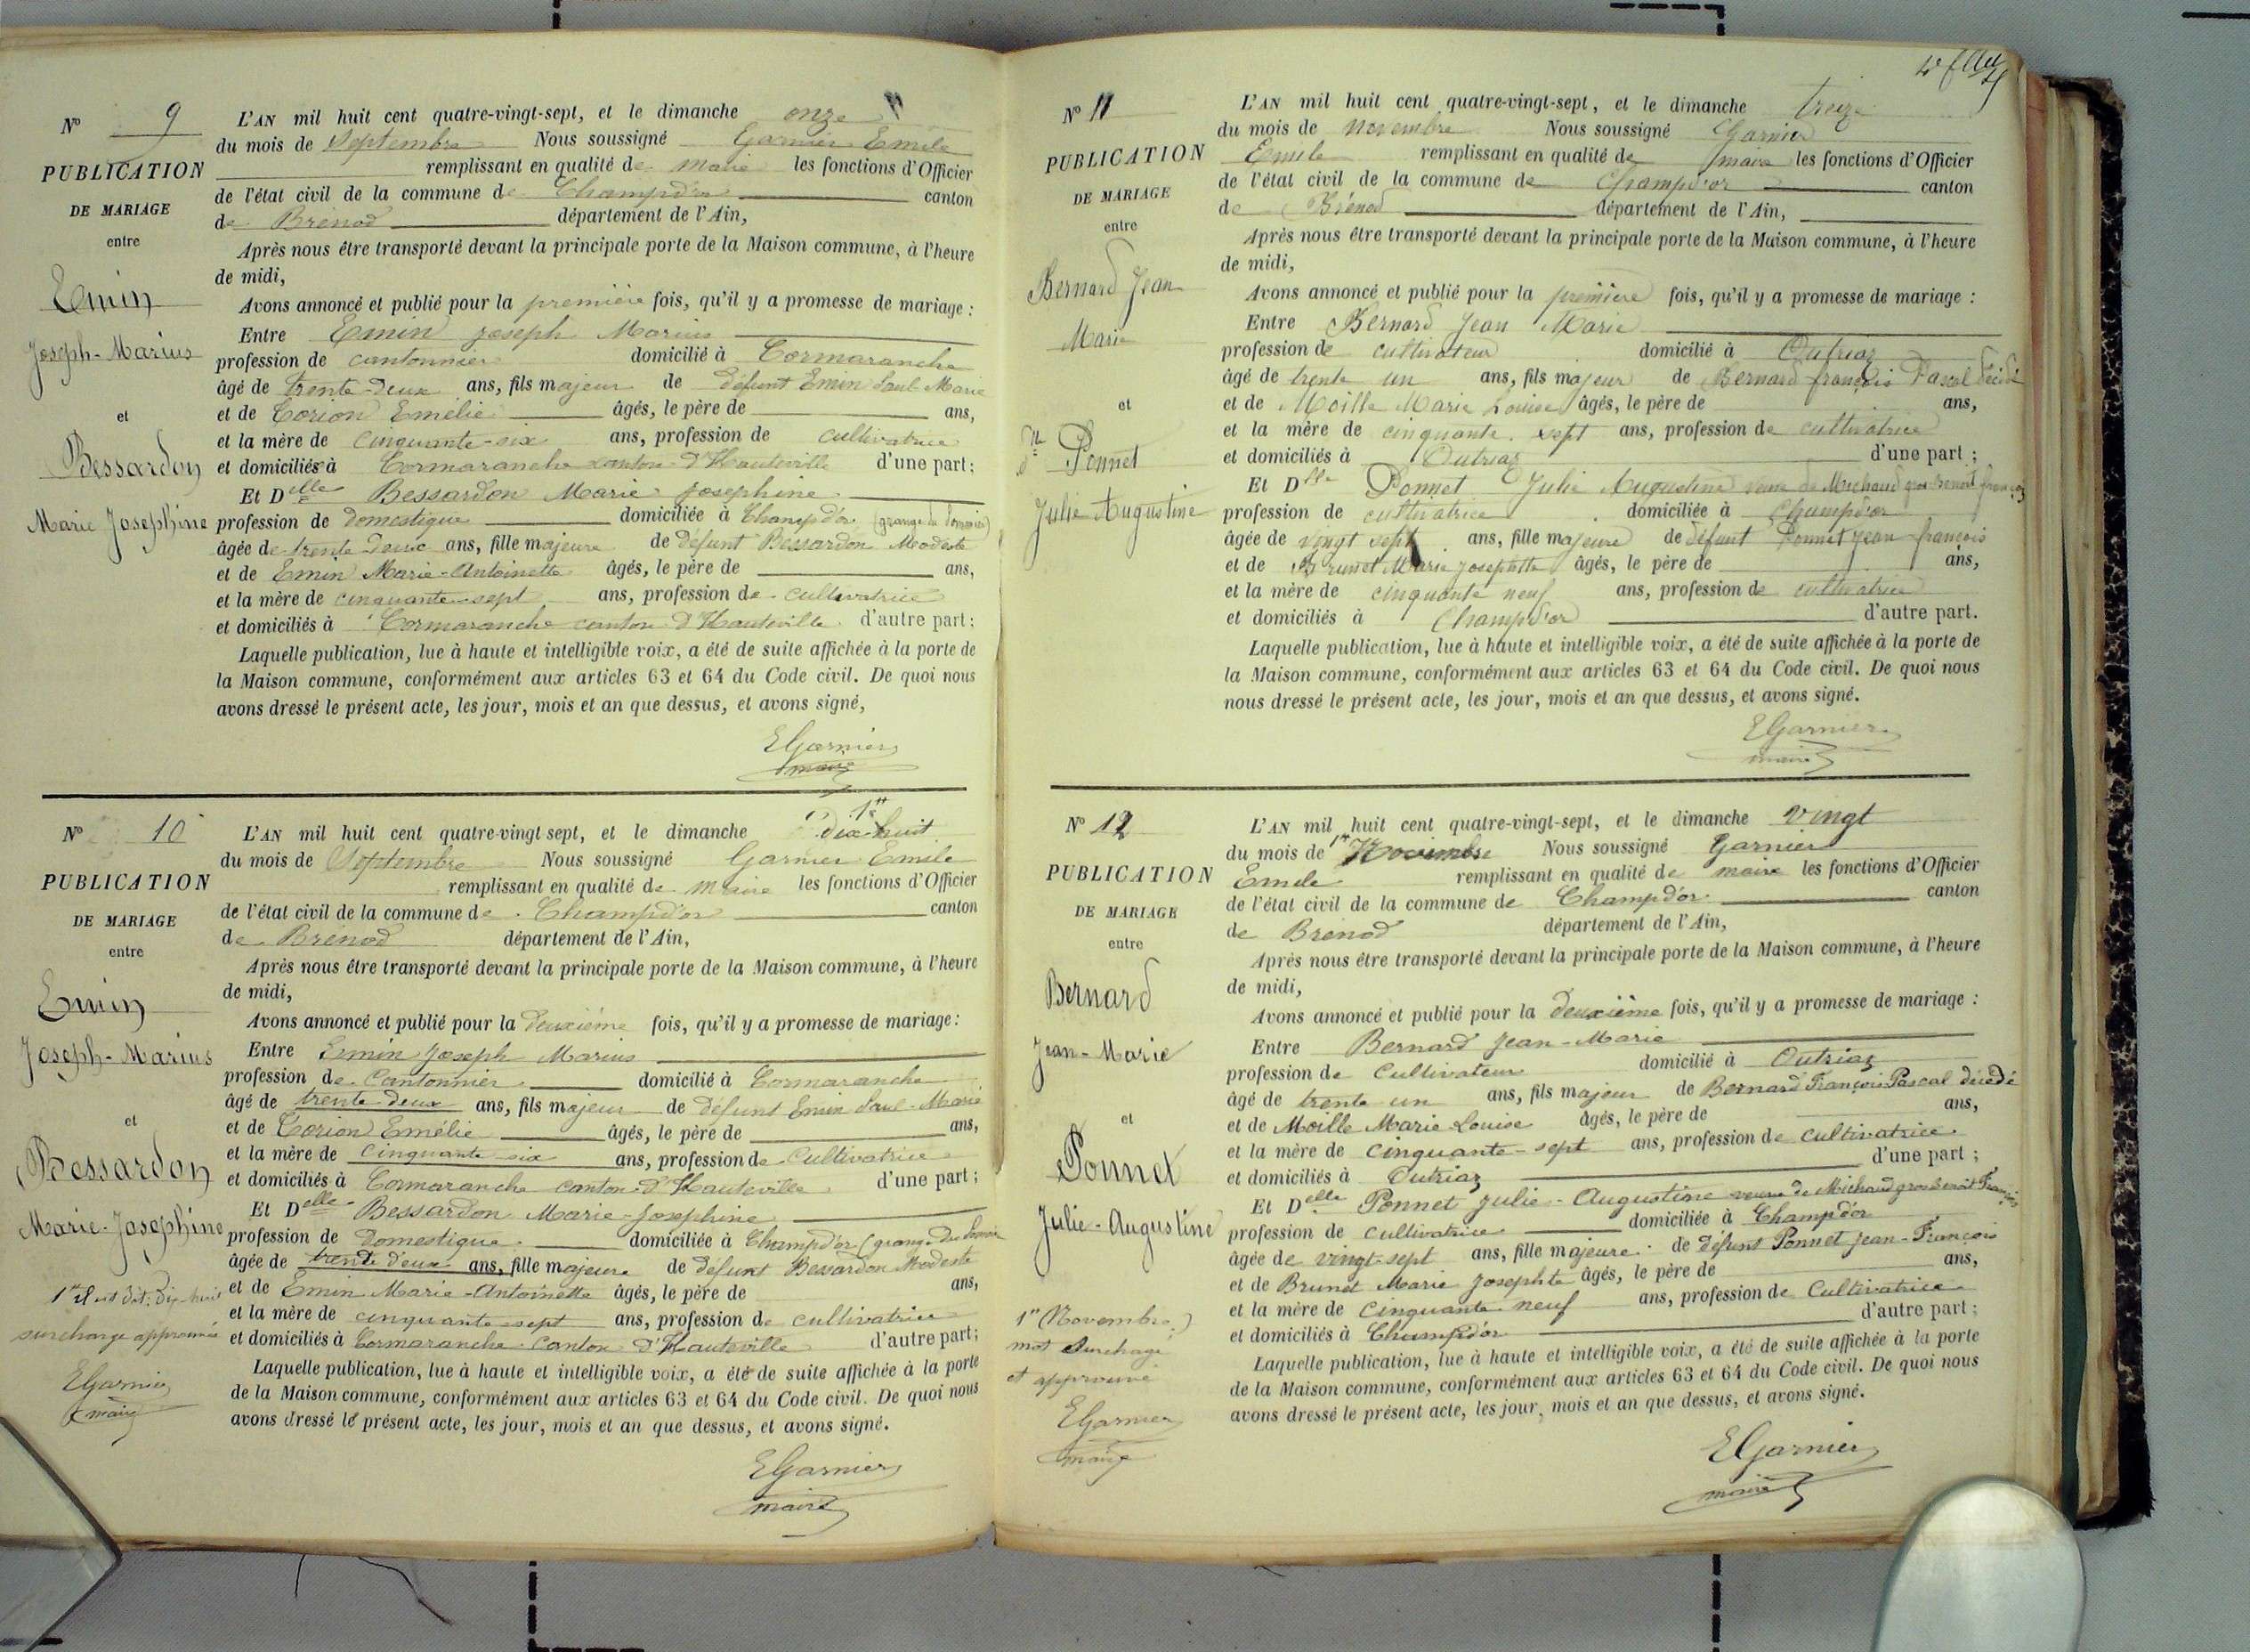 N° 9
PUBLICATION
DE MARIAGE
entre
Emin
Joseph-Marius
et
Bessardon
Marie Josephine
L'AN mil huit cent quatre-vingt-sept, et le dimanche onze
du mois de Septembre Nous soussigné Garnier Emile
remplissant en qualité de maire les fonctions d'Officier
de l'état civil de la commune de Champd'or canton
de Brénod département de l'Ain,
Après nous être transporté devant la principale porte de la Maison commune, à l'heure
de midi,
Avons annoncé et publié pour la première fois, qu'il y a promesse de mariage :
Entre Emin Joseph Marius
profession de cantonnier domicilié à Cormaranche
âgé de trente-deux ans, fils majeur de défunt Emin Paul-Marie
et de Corion Emélie âgés, le père de ans,
et la mère de cinquante-six ans, profession de cultivatrice
et domiciliés à Cormaranche canton d'Hauteville d'une part;
Et Delle Bessardon Marie Josephine
profession de domestique domiciliée à Champd'or (grange du
âgée de trente deux ans, fille majeure de défunt Bessardon Modeste
et de Emin Marie-Antoinette âgés, le père de ans,
et la mère de cinquante-sept ans, profession de cultivatrice
et domiciliés à Cormaranche canton d'Hauteville d'autre part;
Laquelle publication, lue à haute et intelligible voix, a été de suite affichée à la porte de
la Maison commune, conformément aux articles 63 et 64 du Code civil. De quoi nous
avons dressé le présent acte, les jour, mois et an que dessus, et avons signé,
EGarnier
maire
N° 10
PUBLICATION
DE MARIAGE
entre
Emin
Joseph-Marius
et
Bessardon
Marie-Josephine
1er il est dit: Dix-huit
surcharge approuvée
EGarnier
maire
L'AN mil huit cent quatre-vingt sept, et le dimanche 1er Dix-huit
du mois de Septembre Nous soussigné Garnier Emile
remplissant en qualité de maire les fonctions d'Officier
de l'état civil de la commune de Champd'or canton
de Brénod département de l'Ain,
Après nous être transporté devant la principale porte de la Maison commune, à l'heure
de midi,
Avons annoncé et publié pour la deuxième fois, qu'il y a promesse de mariage:
Entre Emin Joseph Marius
profession de Cantonnier domicilié à Cormaranche
âgé de trente-deux ans, fils majeur de défunt Emin Paul-Marie
et de Corion Emélie âgés, le père de ans,
et la mère de cinquante-six ans, profession de Cultivatrice
et domiciliés à Cormaranche canton d'Hauteville d'une part;
Et Delle Bessardon Marie-Josephine
profession de Domestique domiciliée à Champd'or (grange du
âgée de trente deux ans, fille majeure de défunt Bessardon Modeste
et de Emin Marie-Antoinette âgés, le père de ans,
et la mère de cinquante-sept ans, profession de cultivatrice
et domiciliés à Cormaranche canton d'Hauteville d'autre part;
Laquelle publication, lue à haute et intelligible voix, a été de suite affichée à la porte
de la Maison commune, conformément aux articles 63 et 64 du Code civil. De quoi nous
avons dressé le présent acte, les jour, mois et an que dessus, et avons signé.
EGarnier
maire
N° 11
PUBLICATION
DE MARIAGE
entre
Bernard Jean
Marie
et
dlle Ponnet
Julie Augustine
L'AN mil huit cent quatre-vingt-sept, et le dimanche treize
du mois de novembre Nous soussigné Garnier
Emile remplissant en qualité de maire les fonctions d'Officier
de l'état civil de la commune de Champd'or canton
de Brénod département de l'Ain,
Après nous être transporté devant la principale porte de la Maison commune, à l'heure
de midi,
Avons annoncé et publié pour la première fois, qu'il y a promesse de mariage :
Entre Bernard Jean Marie
profession de cultivateur domicilié à Outriaz
âgé de trente un ans, fils majeur de Bernard françois Pascal décédé
et de Moille Marie Louise âgés, le père de ans,
et la mère de cinquante-sept ans, profession de cultivatrice
et domiciliés à Outriaz d'une part ;
Et Dlle Ponnet Julie Augustine veuve de Michaud gros benoit françois
profession de cultivatrice domiciliée à Champd'or
âgée de vingt sept ans, fille majeure de défunt Ponnet Jean françois
et de Brunet Marie Josephtte âgés, le père de ans,
et la mère de cinquante neuf ans, profession de cultivatrice
et domiciliés à Champd'or d'autre part.
Laquelle publication, lue à haute et intelligible voix, a été de suite affichée à la porte de
la Maison commune, conformément aux articles 63 et 64 du Code civil. De quoi nous
nous dressé le présent acte, les jour, mois et an que dessus, et avons signé.
EGarnier
maire
N° 12
PUBLICATION
DE MARIAGE
entre
Bernard
Jean-Marie
et
Ponnet
Julie-Augustine
1er Novembre
mot surchagé
et approuvé
EGarnier
maire
L'AN mil huit cent quatre-vingt-sept, et le dimanche vingt
du mois de 1er Novembre Nous soussigné Garnier
Emile remplissant en qualité de maire les fonctions d'Officier
de l'état civil de la commune de Champd'or canton
de Brénod département de l'Ain,
Après nous être transporté devant la principale porte de la Maison commune, à l'heure
de midi,
Avons annoncé et publié pour la deuxième fois, qu'il y a promesse de mariage :
Entre Bernard Jean-Marie
profession de Cultivateur domicilié à Outriaz
âgé de trente un ans, fils majeur de Bernard François Pascal décédé
et de Moille Marie Louise âgés, le père de ans,
et la mère de cinquante-sept ans, profession de cultivatrice
et domiciliés à Outriaz d'une part ;
Et Delle Ponnet Julie-Augustine veuve de Michaud gros Benoit François
profession de cultivatrice domiciliée à Champd'or
âgée de vingt-sept ans, fille majeure de défunt Ponnet Jean-François
et de Brunet Marie Josephte âgés, le père de ans,
et la mère de cinquante neuf ans, profession de Cultivatrice
et domiciliés à Champd'or d'autre part ;
Laquelle publication, lue à haute et intelligible voix, a été de suite affichée à la porte
de la Maison commune, conformément aux articles 63 et 64 du Code civil. De quoi nous
avons dressé le présent acte, les jour, mois et an que dessus, et avons signé.
EGarnier
maire